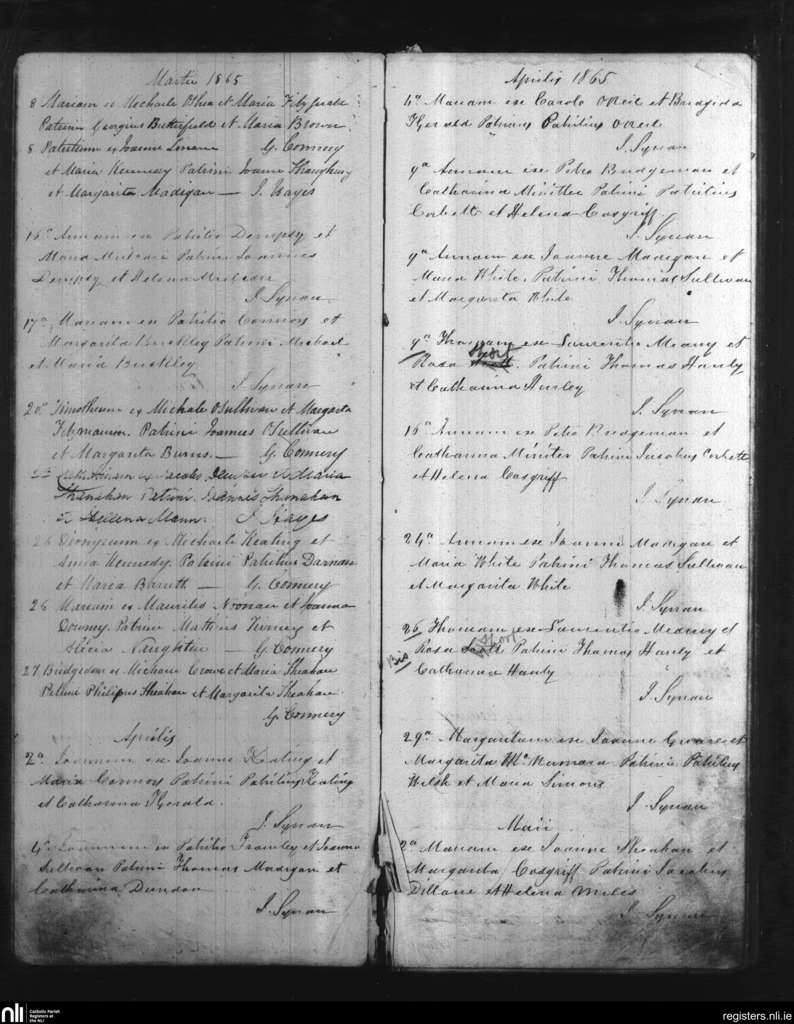 Martii 1865
8 Mariam ex Michaele O'Shea et Maria Fitzgerald
Patrini Georgius Butterfield et Maria Brown
8 Patritium ex Joanne G. Connery
et Maria Kennedy Patrini Joanne Shaughnesy
et Margarita Madigan — J. Hayes
15a Annam ex Patritio Dempsy et
Maria Mulcare Patrini Joannes
Dempsy et Helena Mulcare
J. Synan
17a Mariam ex Patritio Connors et
Margarita Buckley Patrini Michael
et Maria Buckley
J. Synan
20 Timotheum ex Michaele O'Sullivan et Margarita
Fitzmaurice. Patrini Joannes O'Sullivan
et Margarita Burns. — G. Connery
ex Jacobo et Maria
Shanahan Patrini Shanahan
et Hellena Mann. J. Hayes
26 Dionysium ex Michaele Keating et
Anna Kennedy, Patrini Patritius Darnan
et Maria Barrett — G. Connery
26 Mariam ex Mauritio Noonan et Joanna
Downey. Patrini Mathias Tierney et
Alicia Naughten — G. Connery
27 Bridgedam ex Michaele Crowe et Maria Sheahan
Patrini Philipus Sheahan et Margarita Sheahan
G. Connery
Aprilis
2a Joannem ex Joanne Keating et
Maria Connors Patrini Patritius Keating
et Catharina FGerald.
J. Synan
4a Joannem ex Patritio Frawley et Joanna
Sullivan Patrini Thomas Madigan et
Catharina Dundon
J. Synan
Aprilis 1865
4a Mariam exe Carolo O'Neil et Bridgida
FGerald Patrinus Patritius O'Neil
J. Synan
9a Annam exe Petro Bridgeman et
Catharina Minitter Patrini Patritius
Corbett et Helena Cosgriff
J. Synan
9a Annam exe Joanne Madigan et
Maria White, Patrini Thomas Sullivan
et Margarita White
J. Synan
9a Thomam exe Laurentio Meany et
Rosa Short Patrini Thomas Hanly
et Catharina Hurley
J. Synan
16a Annam ex Petro Bridgeman et
Catharina Miniter Patrini Jacobus Corbett
et Helena Cosgriff
J. Synan
24a Annam exe Joanne Madigan et
Maria White Patrini Thomas Sullivan
et Margarita White
J. Synan
26 Thomam exe Laurentio Meany et
Bis Rosa Short Patrini Thomas Hanly et
Catharina Hanly
J. Synan
29a Margaritam exe Joanne Greare et
Margarita McNamara Patrini Patritius
Welsh et Maria Simons
J. Synan
Maii
2a Mariam exe Joanne Sheahan et
Margarita Cosgriff Patrini Jacobus
Dillane et Helena Miles
J. Synan
nli
Catholic Parish
Registers at
the NLI
registers.nli.ie